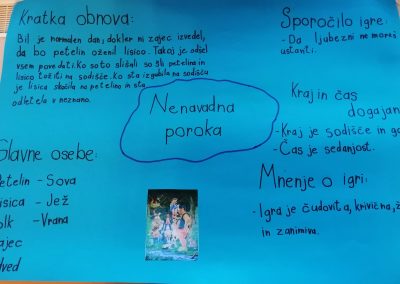 Kratka obnova:
Bil je normalen dan, dokler ni zajec izvedel,
da bo petelin oženil lisico. Takoj je odšel
vsem povedati. Ko so to slišali so šli petelina in
lisico tožiti na sodišče. Ko sta izgubila na sodišču
je lisica skočila na petelina in sta
odletela v neznano.
Glavne osebe:
Petelin - Sova
Lisica - Jež
Volk - Vrana
Zajec
Medved
Nenavadna
poroka
Sporočilo igre:
- Da ljubezni ne moreš
ustaviti.
Kraj in čas
dogajan
- Kraj je sodišče in go
- Čas je sedanjost.
Mnenje o igri:
- Igra je čudovita, krivična, ž
in zanimiva.